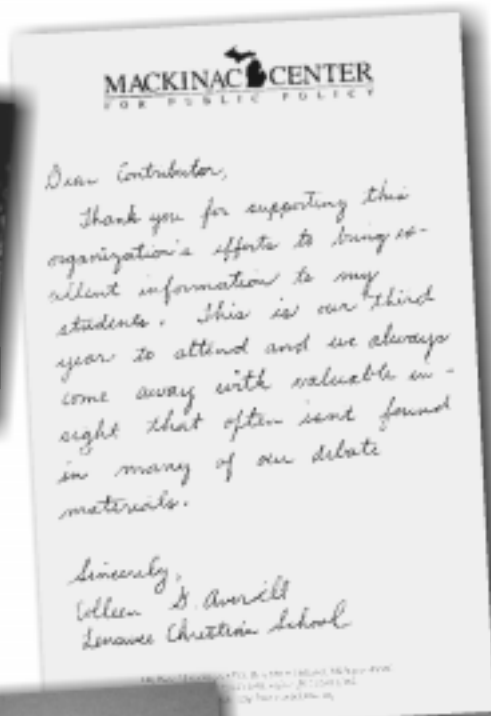 MACKINAC CENTER
FOR PUBLIC POLICY
Dear Contributor,
Thank you for supporting this
organization's efforts to bring ex-
cellent information to my
students. This is our third
year to attend and we always
come away with valuable in-
sight that often isnt found
in many of our debate
materials.
Sincerely,
Colleen S. Averill
Lenawee Christian School